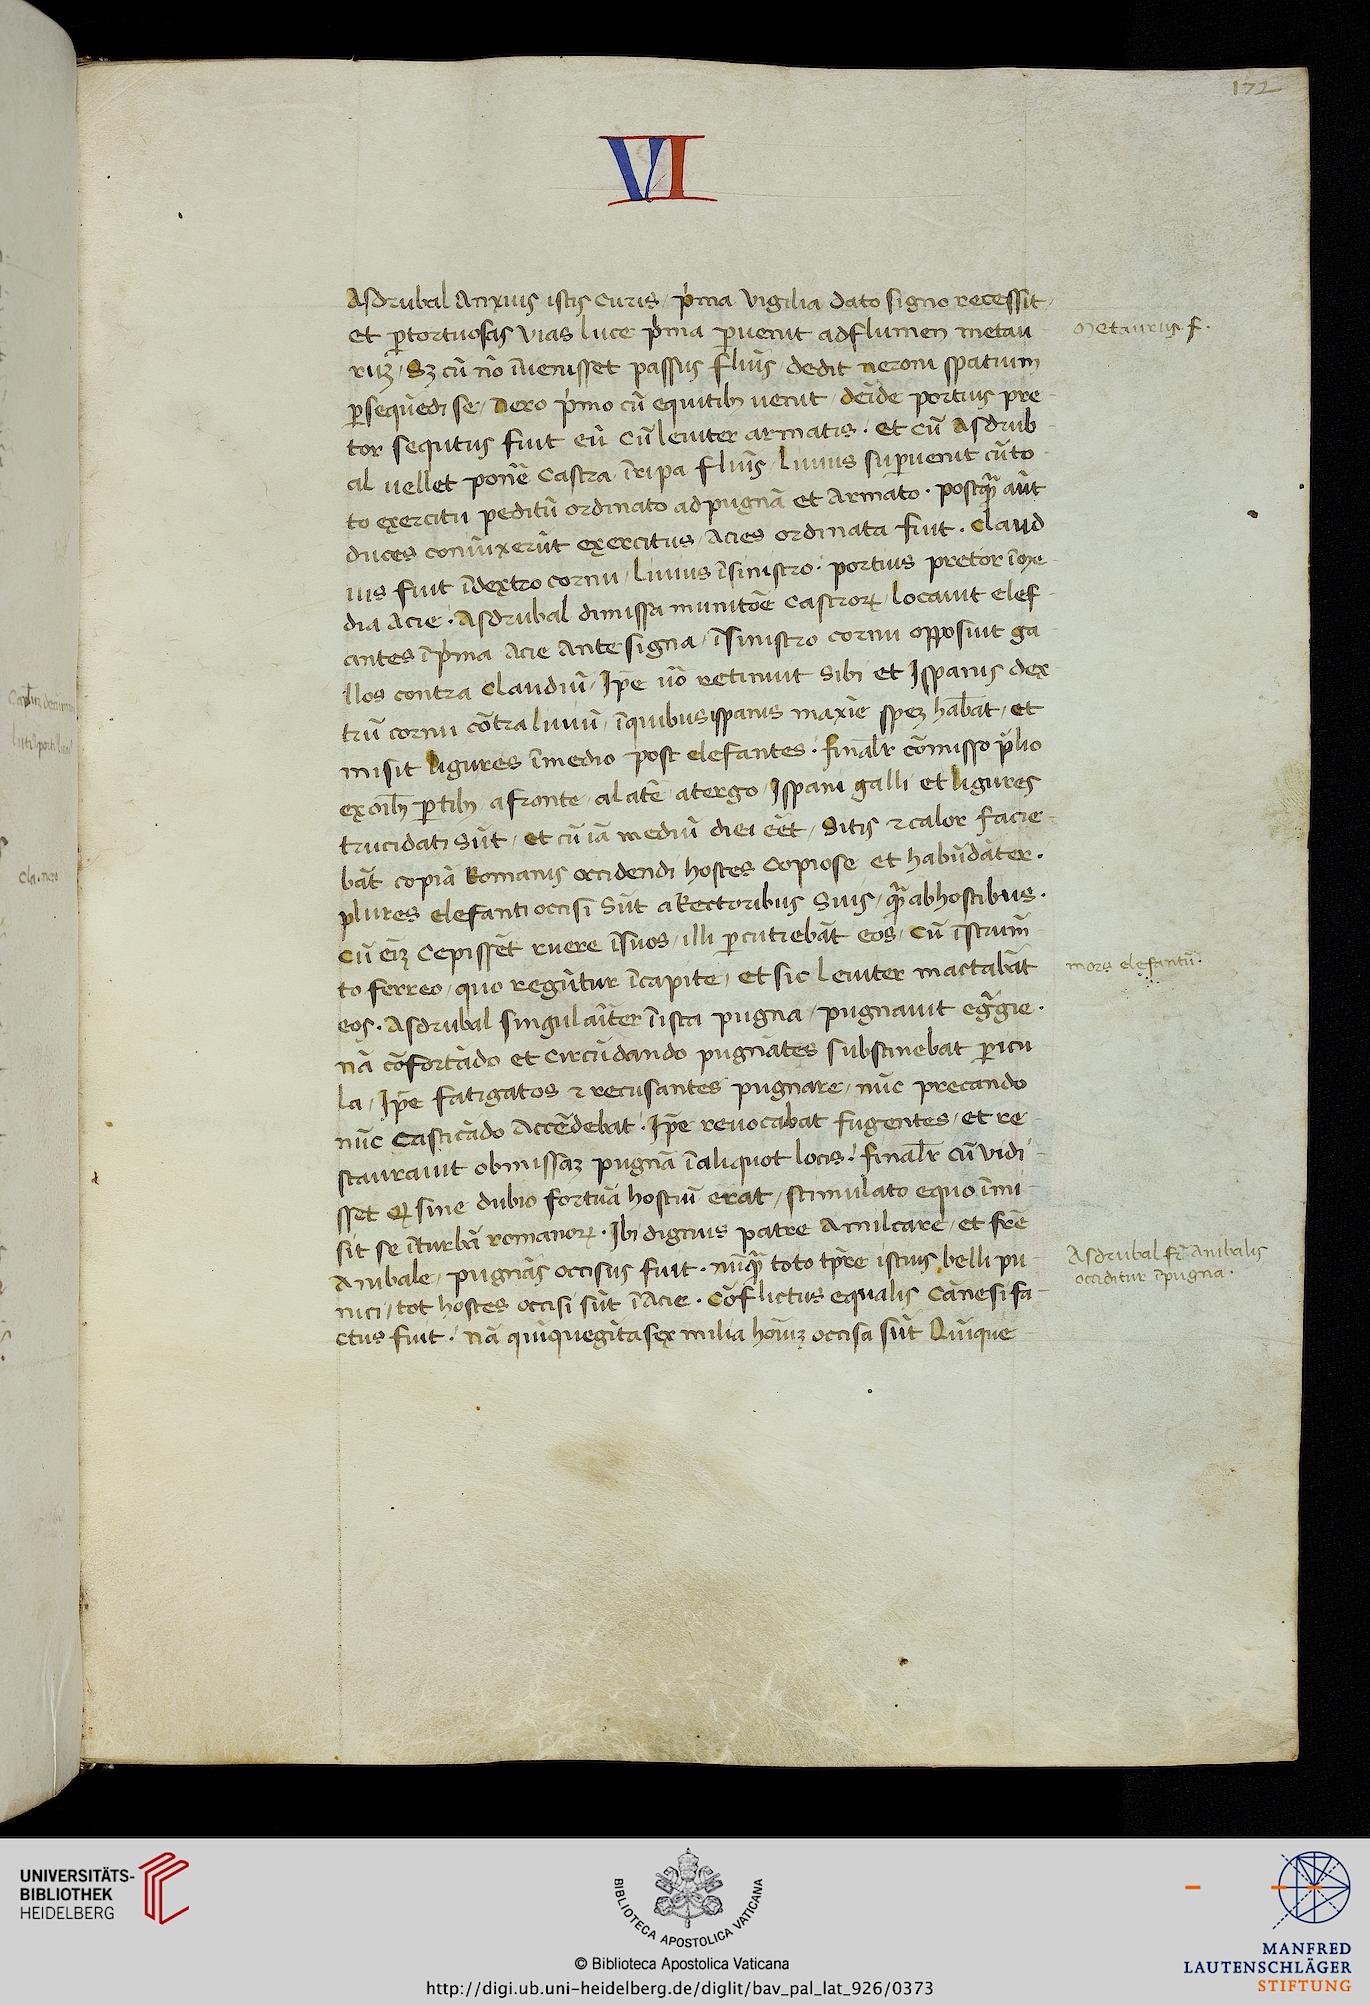 172
VI
Asdrubal Anxius istis Curis / p̍ma vigilia dato signo recessit /
et ꝑtortuosas vias luce p̍ma ꝑuenit adflumen metau
metaurus f.
ruꝫ / Sꝫ cū nō īuenisset passus fluīs / dedit neroni spatium
ꝑseq̄uēdi se / Nero p̍mo cū equitibꝫ uenit / deīde portius pre
tor sequtus fuit eū cū leuiter armatis . et cū Asdrub
al uellet ponē Castra īripa fluīs / Liuius suꝑuenit cūto
to exercitu peditū ordinato adpugnā et Armato . postqᷓ aūt
duces coniūxerūt exercitus / Acies ordinata fuit . Claud
ius fuit īdextro cornu / Liuius īsinistro . portius pretor īme
dia Acie . Asdrubal dimissa munitōe Castroꝝ / locauit elef
antes īp̍ma Acie Ante signa / īsinistro cornu opposuit ga
llos contra Claudiū / Ipe ūo retinuit sibi et Ispanis dex
trū cornu cōtra liuiū / īquibus ispanis maxīe speꝫ hab̄at / et
misit Ligures īmedio post elefantes . finalr̄ cōmisso p̄lio
exoībꝫ ꝑtibꝫ afronte / alatē atergo / Ispani galli et Ligures
trucidati sūt / et cū iā mediū diei eēt / Sitis ⁊ calor facie
bāt copiā Romanis occidendi hostes copiose et habūdāter .
plures elefanti occisi sūt aRectoribus suis / qᷓ abhostibus .
Cū eīꝫ cepissēt ruere īsuos / illi ꝑcutiebāt eos / Cū īstrum̄
to ferreo / quo regūtur īcapite / et sic leuiter mactabāt
mors elefantū .
eos . Asdrubal singulaīter īista pugna / pugnauit egᷓgie .
nā cōfortādo et circūdando pugnātes substinebat ꝑicu
la / Ipē fatigatos ⁊ recusantes pugnare / nūc precando
nūc Casticādo Accēdebat . Ipē reuocabat fugentes / et re
staurauit obmissaꝫ pugnā īaliquot locis . finalr̄ cū vidi
sset ꝙ sine dubio fortūa hostiū erat / stimulato equo īmi
sit se īturbā romanoꝝ . Ibi dignus patre Amilcare / et frē
Anibale / pugnās occisus fuit . nūqᷓ toto tp̄re istius belli pu
Asdrubal fr̄ Anibalis
occiditur īpugna .
nici / tot hostes occisi sūt īAcie . Cōflictus equalis Cānesi fa
ctus fuit . nā quīquegītasex milia hoīuꝫ occisa sūt Quīque
cla . nero
UNIVERSITÄTS-
BIBLIOTHEK
HEIDELBERG
BIBLIOTECA APOSTOLICA VATICANA
© Biblioteca Apostolica Vaticana
http://digi.ub.uni-heidelberg.de/diglit/bav_pal_lat_926/0373
MANFRED
LAUTENSCHLÄGER
STIFTUNG